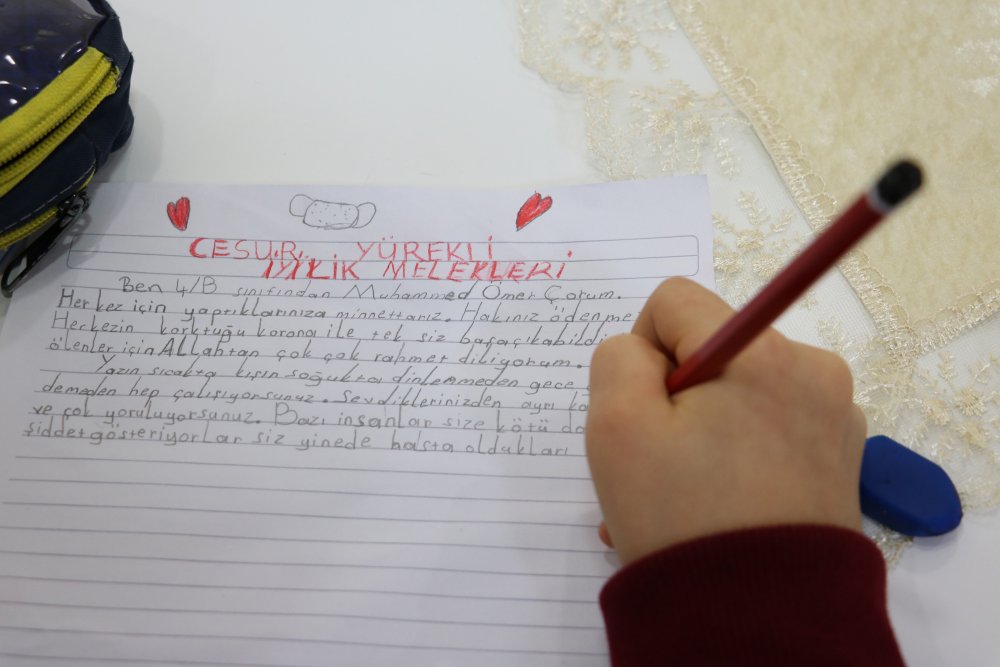 CESUR YÜREKLİ
İYİLİK MELEKLERİ
Ben 4/B sınıfından Muhammed Ömer Çorum.
Herkez için yaptıklarınıza minnettarız. Hakınız ödenmez
Herkezin korktuğu korona ile tek siz başaçıkabildi
ölenler için Allahtan çok çok rahmet diliyorum.
Yazın sıcakta kışın soğukta dinlenmeden gece
demeden hep çalışıyorsunuz. Sevdiklerinizden ayrı
ve çok yoruluyorsunuz. Bazı insanlar size kötü
şiddet gösteriyorlar siz yinede hasta oldukları